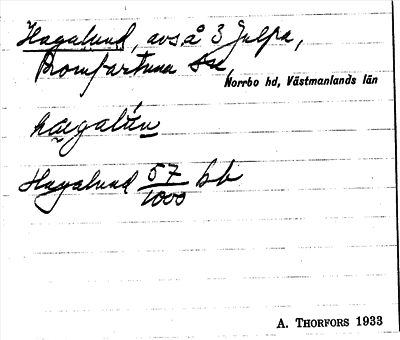 Hagalund, avs å 3 Julpa,
Romfartuna sn,
Norrbo hd, Västmanlands län
hagalún
Hagalund 57/1000 bb
A. THORFORS 1933